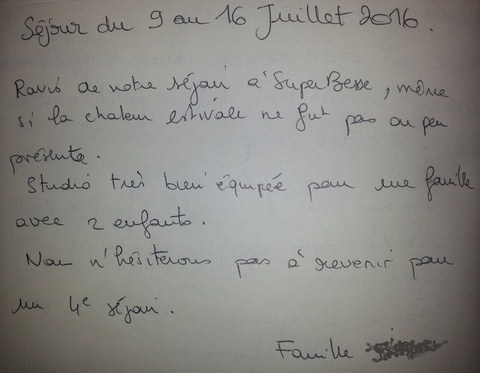 Séjour du 9 au 16 Juillet 2016.
Ravis de notre séjour à SuperBesse, même
si la chaleur estivale ne fut pas ou peu
présente.
Studio très bien équipée pour une famille
avec 2 enfants.
Nous n'hésiterons pas à revenir pour
un 4e séjour.
Famille